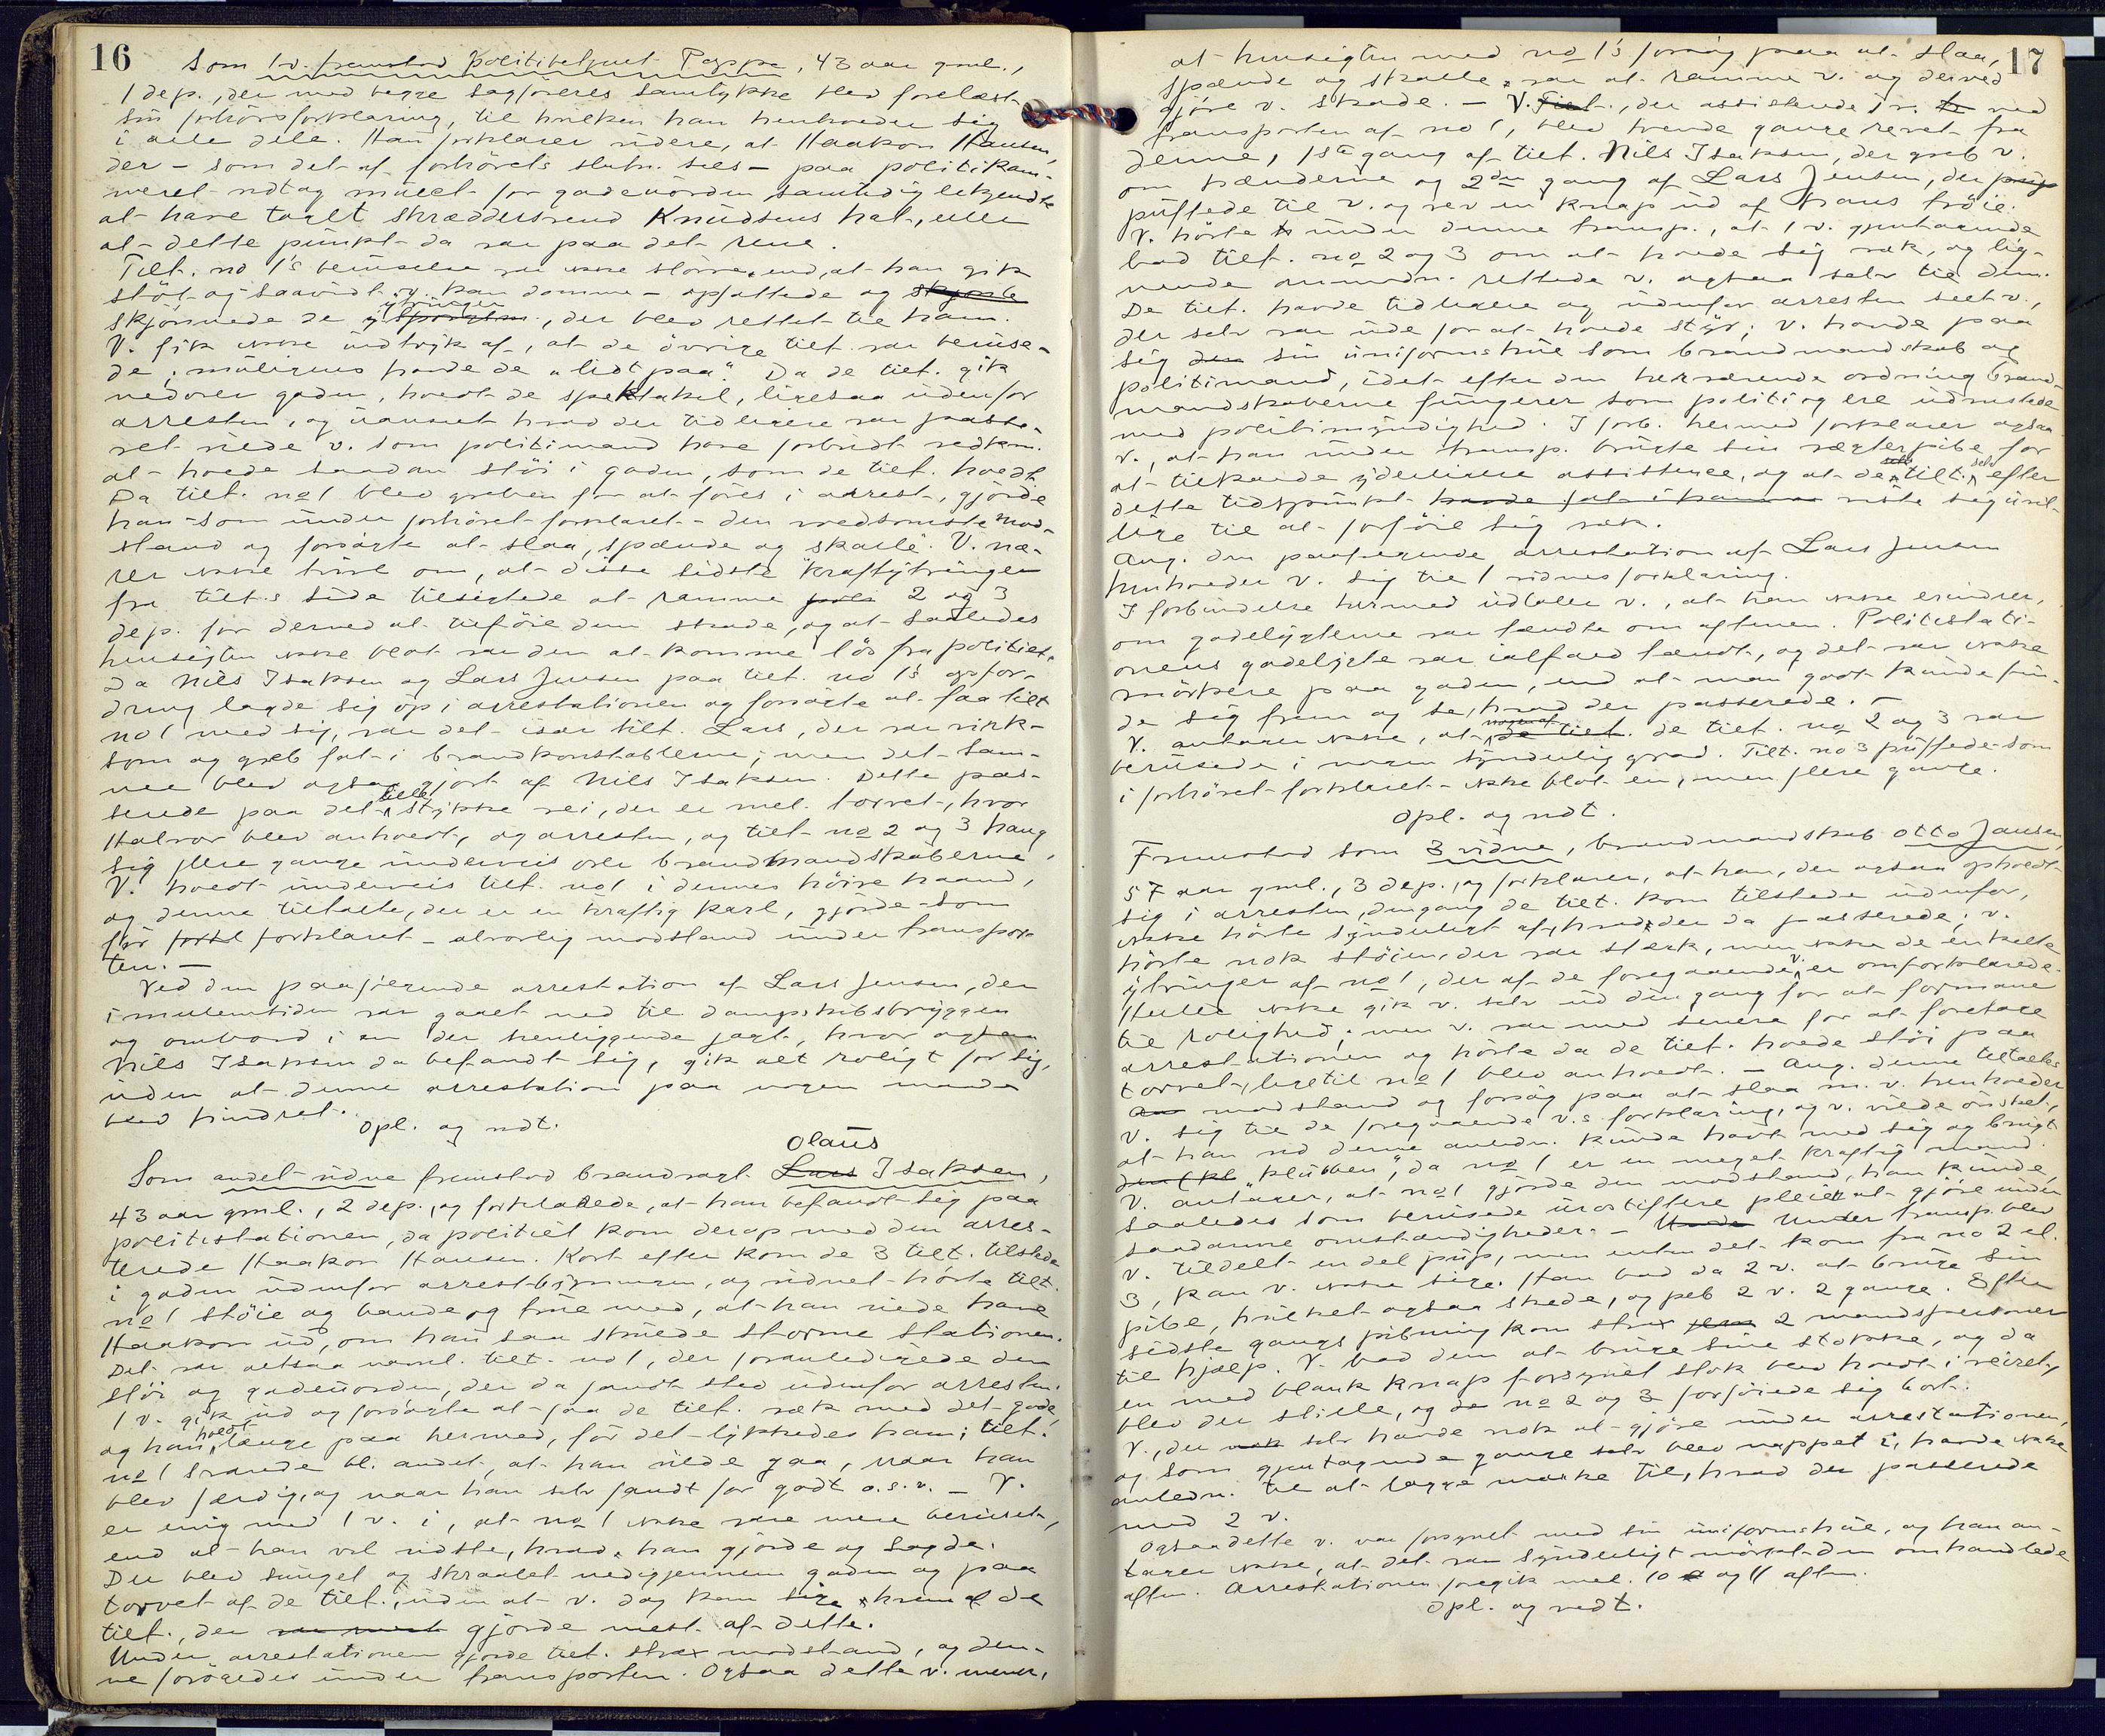 16
Som 1v. fremstod Politibetjent Poppe, 43 aar gml.,
1 dep., der med begge sagføreres samtykke blev forelæst
sin forhørsforklaring, til hvilken han henholder sig
i alle dele. Han forklarer videre, at Haakon Hansen,
der – som det af forhørets slutn. sees – paa politikam-
meret vedtog mulct for gadeuorden samtidig
at have taget skræddersvend Knudsens hat, eller
at dette punkt da var paa det rene.
Tilt. no 1's beruselse var ikke større, end at han gik
støt og saavidt v. kan dømme – opfattede og skjønte
skjønnede de ytringer, der blev rettet til ham.
V. fik ikke indtryk af, at de øvrige tilt. var beruse-
de; muligens havde de "lidt paa". Da de tilt. gik
nedover gaden, holdt de spektakel, ligesaa udenfor
arresten, og uanseet hvad der tidligere var passe-
ret vilde v. som politimand have forbudt vedkom.
at holde saadan støi i gaden, som de tilt. holdt.
Da tilt. no 1 blev greben for at føres i arrest, gjorde
han – som under forhøret forklaret – den voldsomste mod-
stand og forsøgte at slaa, spænde og skalle. V. næ-
rer ikke tvivl om, at disse sidste kraftytringer
fra tilt.s side tilsigtede at ramme 2 og 3
dep. for derved at tilføie dem skade, og at saaledes
hensigten ikke blot var den at komme løs fra politiet.
Da Nils Isaksen og Lars Jensen paa tilt. no 1's opfor-
dring lagde sig op i arrestationen og forsøgte at faa tilt
no 1 med sig, var det især tilt. Lars, der var virk-
som og greb fat i brandkonstablerne; men det sam-
me blev ogsaa gjort af Nils Isaksen. Dette pas-
serede paa det lille stykke vei, der er mel. torvet, hvor
Halvor blev anholdt, og arresten, og tilt. no 2 og 3 hang
sig flere gange underveis over brandmandskaberne.
V. holdt underveis tilt. no 1 i dennes høire haand,
og denne tiltalte, der er en kraftig karl, gjorde – som
før forklaret – alvorlig modstand under transpor-
ten. –
Ved den paafølgende arrestation af Lars Jensen, der
imidlertiden var gaaet ned til dampskibsbryggen
og ombord i en der henliggende jagt, hvor ogsaa
Nils Isaksen da befandt sig, gik alt roligt for sig,
uden at denne arrestation paa nogen maade
blev hindret.
Opl. og vedt.
Olaus
Som andet vidne fremstod brandvagt Lars Isaksen,
43 aar gml., 2 dep., og forklarede, at han befandt sig paa
politistationen, da politiet kom derop med den arres-
terede Haakon Hansen. Kort efter kom de 3 tilt. tilstede
i gaden udenfor arrestbygningen, og vidnet hørte tilt.
no 1 støie og bande og true med, at han vilde have
Haakon ud, om han saa skulde storme stationen.
Det var altsaa navnl. tilt. no 1, der foranledigede den
støi og gadeuorden, der da fandt sted udenfor arresten.
1 v. gik ud og forsøgte at faa de tilt. væk med det gode,
og han holdt længe paa hermed, før det lykkedes ham; tilt.
no 1 svarede bl. andet, at han vilde gaa, naar han
blev færdig, og naar han selv fandt for godt o.s.v. – V.
er enig med 1 v. i, at no 1 ikke var mere beruset,
end at han vel vidste, hvad han gjorde og sagde.
Der blev sunget og skraalet nedigjennem gaden og paa
torvet af de tilt., uden at v. dog kan sige hvem af de
tilt., der var mest gjorde mest af dette.
Under arrestationen gjorde tilt. strax modstand, og den-
ne forøgedes under transporten. Ogsaa dette v. mener,
17
at hensigten med no 1's forsøg paa at slaa,
spænde og skalle, var at ramme v. og derved
gjøre v. skade. – V. Tilt., der assisterede 1 v. ved
transporten af no 1, blev tvende gange revet fra
denne, 1ste gang af tilt. Nils Isaksen, der greb v.
om hænderne og 2den gang af Lars Jensen, der
puffede til v. og rev en knap ud af hans trøie.
V. hørte under denne transp., at 1 v. gjentagende
bad tilt. no 2 og 3 om at holde sig væk, og lig-
nende anmodn. rettede v. ogsaa selv til dem.
De tilt. havde tidligere og udenfor arresten seet v.,
der selv var ude for at holde styr; v. havde paa
sig den sin uniformshue som brandmandskab og
politimand, idet efter den herværende ordning brand-
mandskaberne fungerer som politi og ere udrustede
med politimyndighed. I forb. hermed forklarer ogsaa
v., at han under transp. brugte sin vægterpibe for
at tilkalde yderligere assistence, og at de tilt. selv efter
dette tidspunkt viste sig uvil-
lige til at forføie sig væk.
Ang. den paafølgende arrestation af Lars Jensen
henholder v. sig til 1 vidnes forklaring.
I forbindelse hermed udtaler v., at han ikke erindrer,
om gadelygterne var tændte om aftenen. Politistati-
onens gadelygte var ialfald tændt, og det var ikke
mørkere paa gaden, end at man godt kunde fin-
de sig frem og se, hvad der passerede. –
V. antager ikke, at nogen af de tilt. de tilt. no 2 og 3 var
berusede i nogen synderlig grad. Tilt. no 3 puffede – som
i forhøret forklaret – ikke blot en, men flere gange.
Opl. og vdt.
Fremstod som 3 vidne, brandmandskab Otto Jansen,
57 aar gml., 3 dep., og forklarer, at han, der ogsaa opholdt
sig i arresten, dengang de tilt. kom tilstede udenfor,
ikke hørte synderligt af, hvad der da passerede; v.
hørte nok støien, der var stærk, men ikke de enkelte
ytringer af no 1, der af de foregaaende v. er omforklarede.
Heller ikke gik v. selv ud dengang for at formane
til rolighed; men v. var med senere for at foretage
arrestationen og hørte da de tilt. holde støi paa
torvet, ligetil no 1 blev anholdt. – Ang. denne tiltaltes
modstand og forsøg paa at slaa m.v. henholder
v. sig til de foregaaende v.s forklaring, og v. vilde ønsket,
at han ved denne anledn. kunde havt med sig og brugt
"klubben", da no 1 er en meget kraftig mand.
V. antager, at no 1 gjorde den modstand, han kunde,
saaledes som berusede urostiftere pleier at gjøre under
saadanne omstændigheder. – Under Under transp. blev
v. tildelt en del puf, men enten det kom fra no 2 el.
3, kan v. ikke sige. Han bad da 2 v. at bruge sin
pibe, hvilket ogsaa skede, og peb 2 v. 2 gange. Efter
sidste gangs pibning kom strax 2 mandspersoner
til hjælp. V. bad dem at bruge sine stokke, og da
en med blank knap forsynet stok blev holdt i veiret,
blev der stille, og de no 2 og 3 forføiede sig bort.
V., der selv havde nok at gjøre under arrestationen,
og som gjentagende gange blev nappet i, havde ikke
anledn. til at lægge mærke til, hvad der passerede
med 2 v.
Ogsaa dette v. var forsynet med sin uniformshue, og han an-
tager ikke, at det var synderligt mørkt den omhandlede
aften. Arrestationen foregik mel. 10 og 11 aften.
Opl. og vedt.